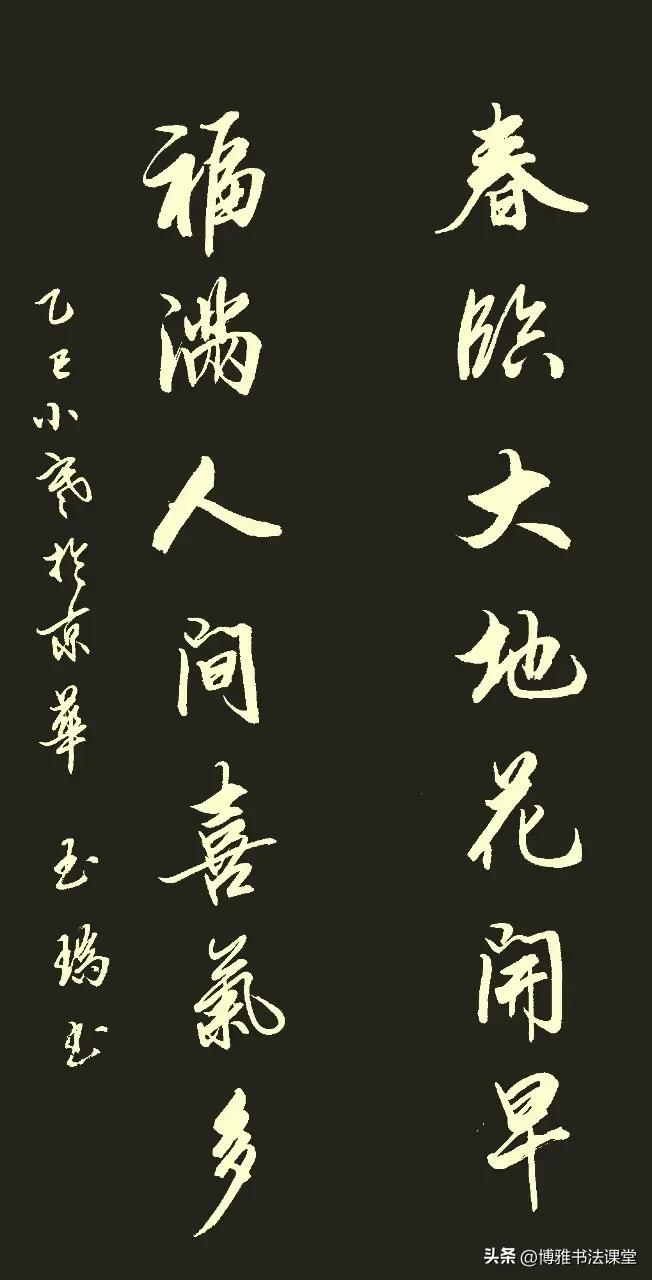 春臨大地花開早
福滿人间喜氣多
乙巳小寒於京華 玉瑞书
头条 @博雅书法课堂